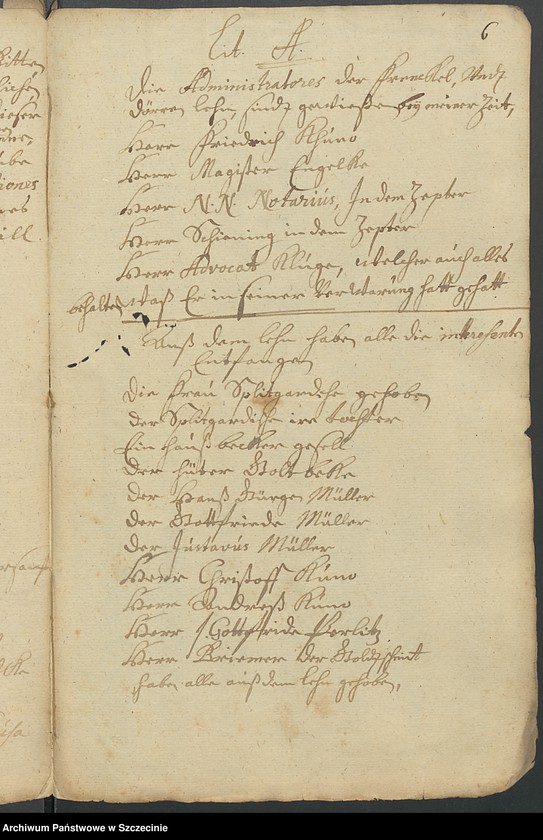 6
Lit. A.
Die Administratores der Frenckel, Undt
dörren lehn, sindt gewießen bey meiner Zeit,
Herr Friedrich Khüno
Herr Magister Engelke
Herr N: N: Notariüs, In dem Zepter
Herr Schiening in dem Zepter
Herr Advocat Klüge, welcher auch alles
behalten waß Er in seiner Verwarüng hatt gehatt
Auß dem lehn haben alle die intteresenten
Entfangen
Die Fraü Splitgardsche gehoben
der Splitgardsche ire tochter
Ein hauß becker gesell
der hüter Stolt beke
der Hanß Jürgen Müller
der Gottfriede Müller
der Jüstavüs Müller
Herr Christoff Küno
Herr Andreß Küno
Herr J. Gottfriede Perlitz
Herr Briemer der Goldtschmit
haben alle auß dem lehn gehoben,
Archiwum Państwowe w Szczecinie